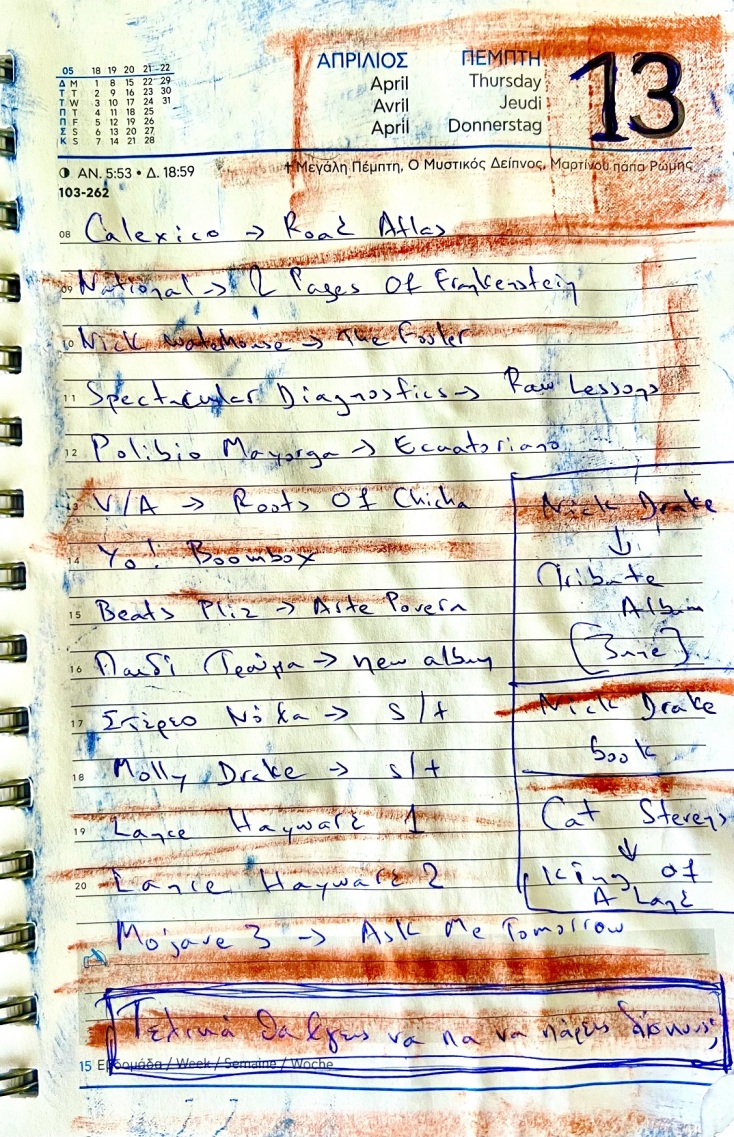 05 18 19 20 21 22
Δ M 1 8 15 22 29
Τ T 2 9 16 23 30
Τ W 3 10 17 24 31
Π T 4 11 18 25
Π F 5 12 19 26
Σ S 6 13 20 27
Κ S 7 14 21 28
ΑΠΡΙΛΙΟΣ ΠΕΜΠΤΗ
April Thursday
Avril Jeudi
April Donnerstag
13
ΑΝ. 5:53 • Δ. 18:59
103-262
Μεγάλη Πέμπτη, Ο Μυστικός Δείπνος, Μαρτίνου πάπα Ρώμης
08 Calexico → Road Atlas
09 National → 2 Pages Of Frankenstein
10 Nick Waterhouse → The Fooler
11 Spectacular Diagnostics → Raw Lessons
12 Polibio Mayorga → Ecuatoriano
13 V/A → Roots Of Chicha
14 Yo! Boombox
15 Beats Pliz → Arte Povera
16 Παιδί Τραύμα → new album
17 Στέρεο Νόβα → s/t
18 Molly Drake → s/t
19 Lance Hayward 1
20 Lance Hayward 2
Mojave 3 → Ask Me Tomorrow
Nick Drake
↓
Tribute
Album
Nick Drake
book
Cat Stevens
↓
King of
A Land
Τελικά θα βγεις να πα να πάρεις δίσκους;
15 Εβδομάδα / Week / Semaine / Woche